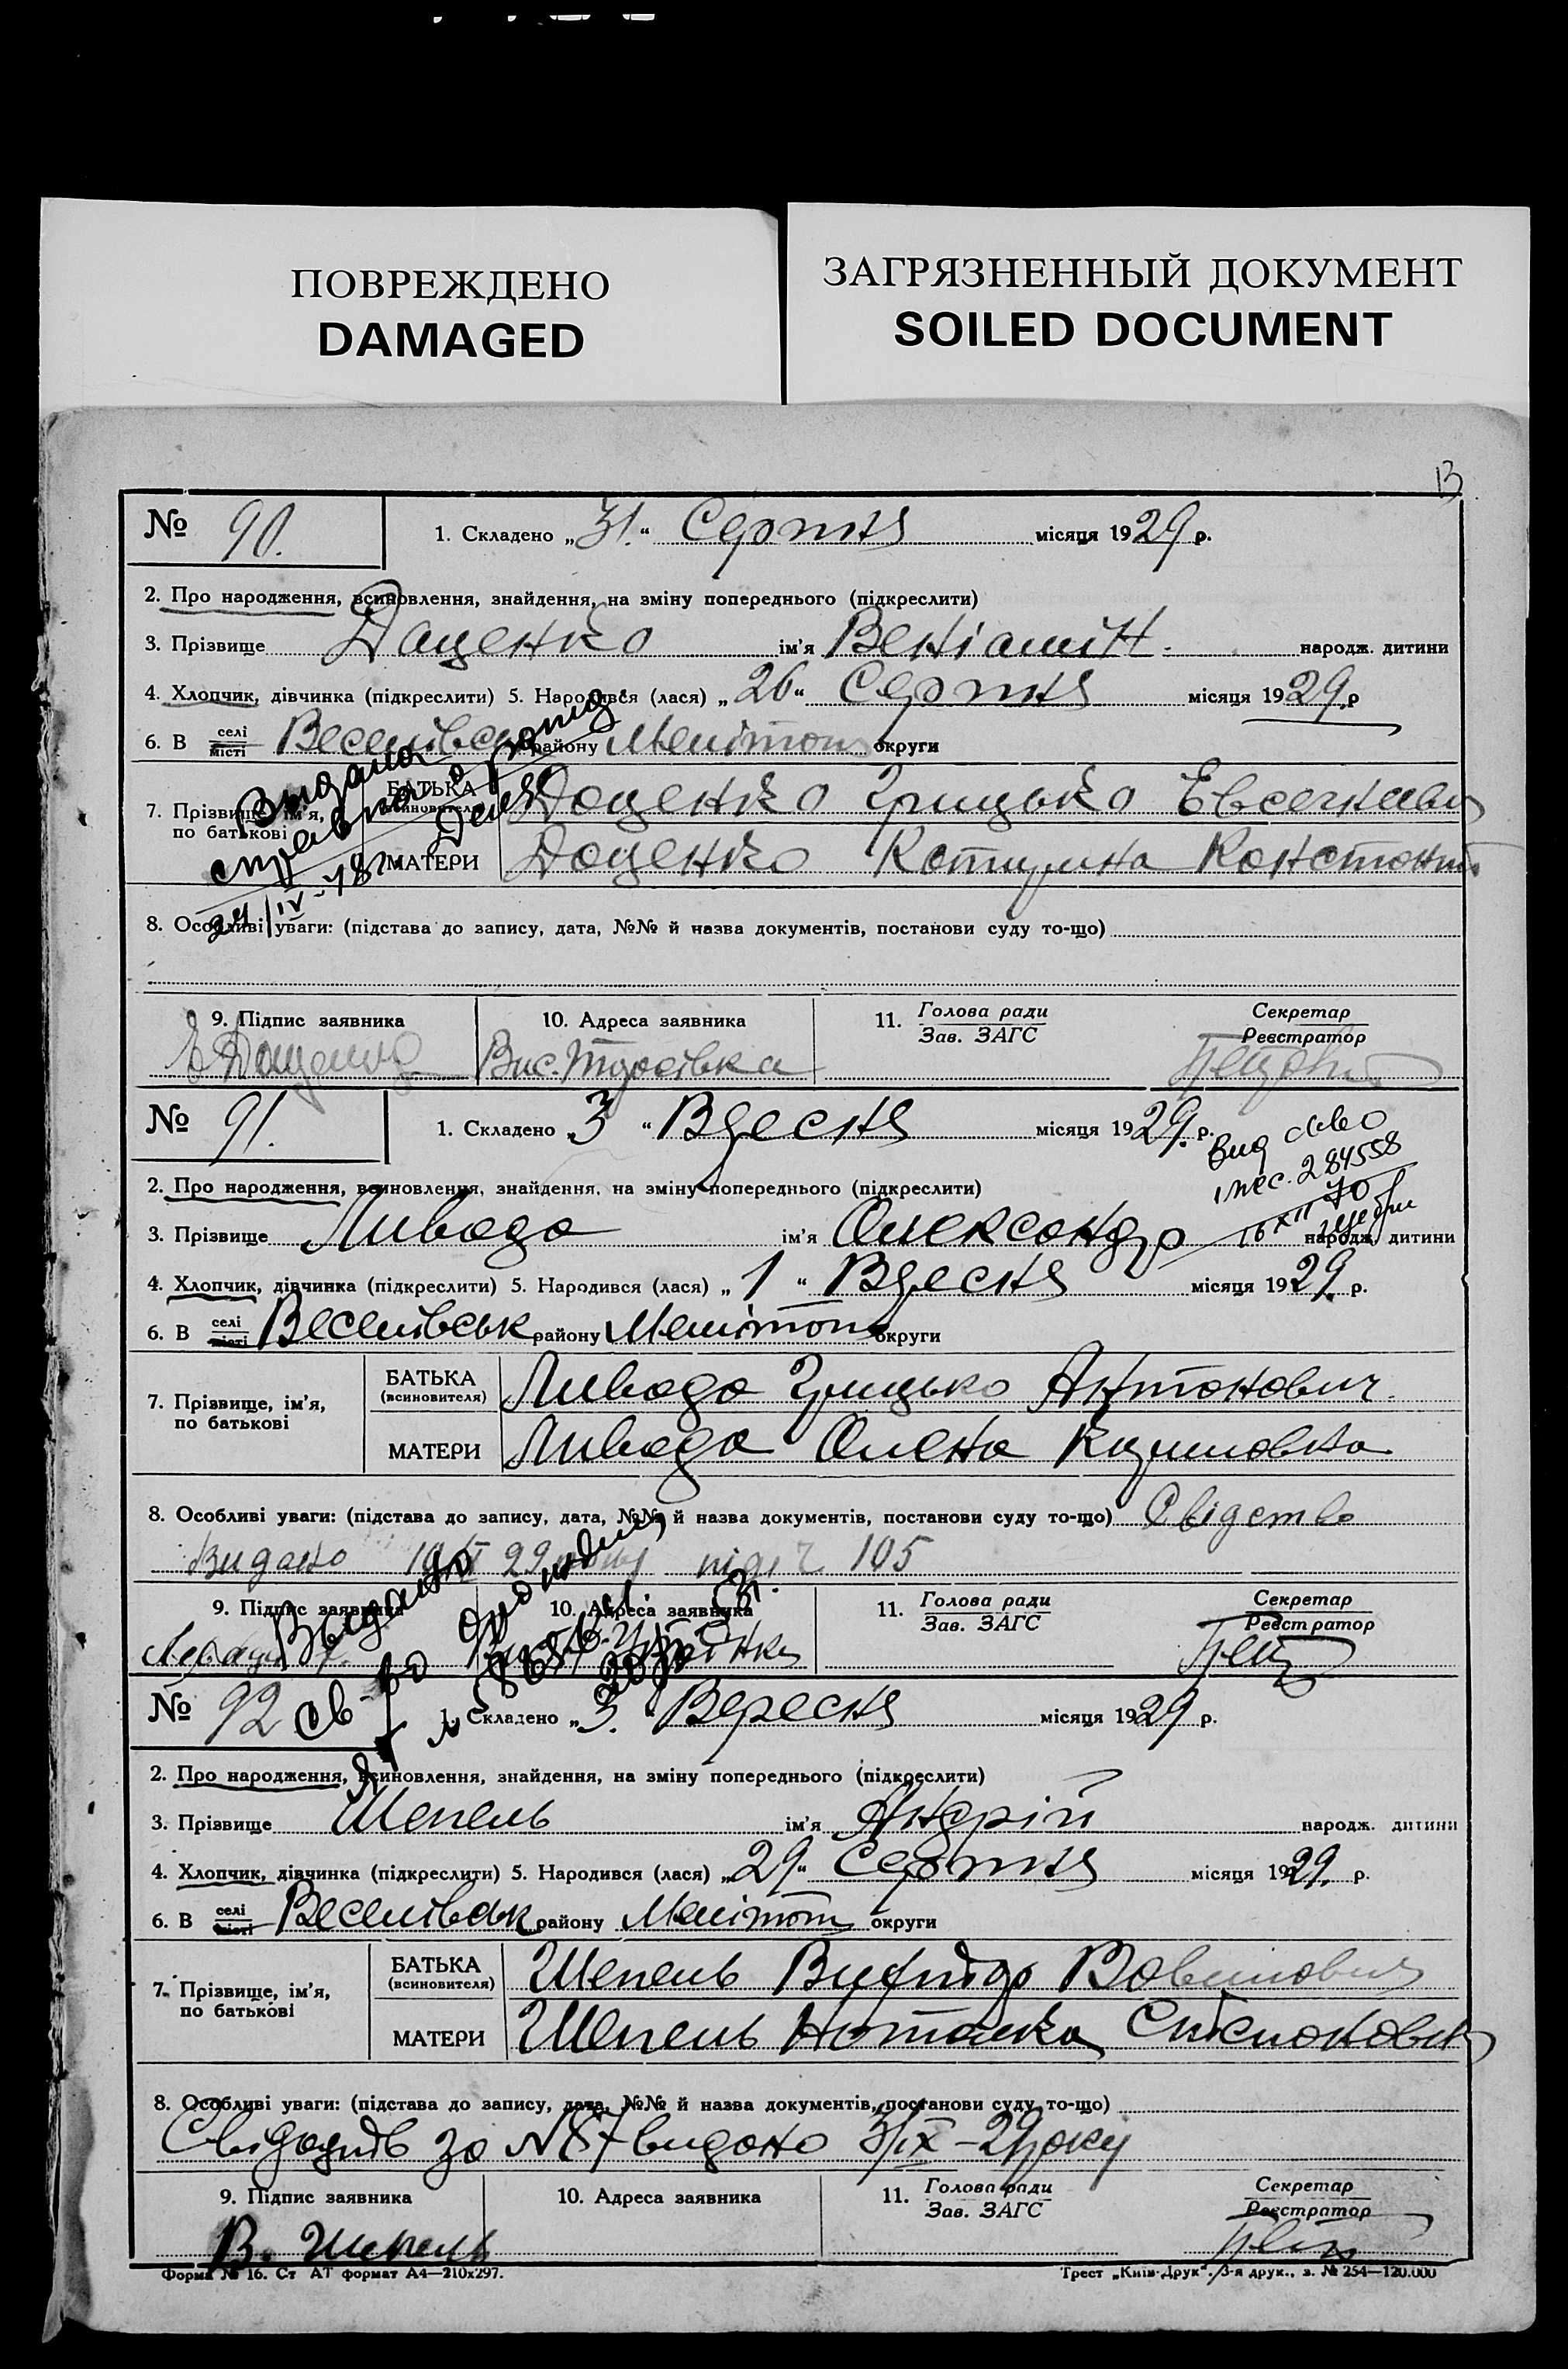 ПОВРЕЖДЕНО
DAMAGED
ЗАГРЯЗНЕННЫЙ ДОКУМЕНТ
SOILED DOCUMENT
13
№ 90. 1. Складено „31.“ Серпня місяця 1929 р.
2. Про народження, всиновлення, знайдення, на зміну попереднього (підкреслити)
3. Прізвище Даценко ім'я Веніамін. народж. дитини
4. Хлопчик, дівчинка (підкреслити) 5. Народився (лася) „26“ Серпня місяця 1929 р
6. В селі місті Веселівськ району Мелітоп округи
7. Прізвище, ім'я, по батькові БАТЬКА (всиновителя) Доценко Грицько
МАТЕРИ Доценко Катерина Констонт
Видана
справка о
24/IV-78г
8. Особливі уваги: (підстава до запису, дата, №№ й назва документів, постанови суду то-що)
9. Підпис заявника 10. Адреса заявника 11. Голова ради Зав. ЗАГС Секретар Реєстратор
№ 91. 1. Складено „3“ Вресня місяця 1929. р.
вид св-во
284558
16 XII 70
2. Про народження, всиновлення, знайдення, на зміну попереднього (підкреслити)
3. Прізвище Ливада ім'я Олександр народж. дитини
4. Хлопчик, дівчинка (підкреслити) 5. Народився (лася) „1“ Вресня місяця 1929. р.
6. В селі місті Веселівськ району Мелітоп округи
7. Прізвище, ім'я, по батькові БАТЬКА (всиновителя) Ливадо Грицько Антонович
МАТЕРИ Ливада Олена Кириловна
8. Особливі уваги: (підстава до запису, дата, №№ й назва документів, постанови суду то-що) Свідетво
видано 29 під ч. 105
9. Підпис заявника 10. Адреса заявника 11. Голова ради Зав. ЗАГС Секретар Реєстратор
Выдано
св-во
№ 92 1. Складено „3.“ Вересня місяця 1929 р.
2. Про народження, всиновлення, знайдення, на зміну попереднього (підкреслити)
3. Прізвище Шепель ім'я Андрій народж. дитини
4. Хлопчик, дівчинка (підкреслити) 5. Народився (лася) „29“ Серпня місяця 1929. р.
6. В селі місті Веселівськ району Мелітоп округи
7. Прізвище, ім'я, по батькові БАТЬКА (всиновителя) Шепель
МАТЕРИ Шепель Наталка
8. Особливі уваги: (підстава до запису, дата, №№ й назва документів, постанови суду то-що)
за №87 видано 3/IX-29 року
9. Підпис заявника 10. Адреса заявника 11. Голова ради Зав. ЗАГС Секретар Реєстратор
В. Шепель
Форма № 16. Ст АТ формат А4—210х297.
Трест „Київ-Друк“. 3-я друк., з. № 254—120.000